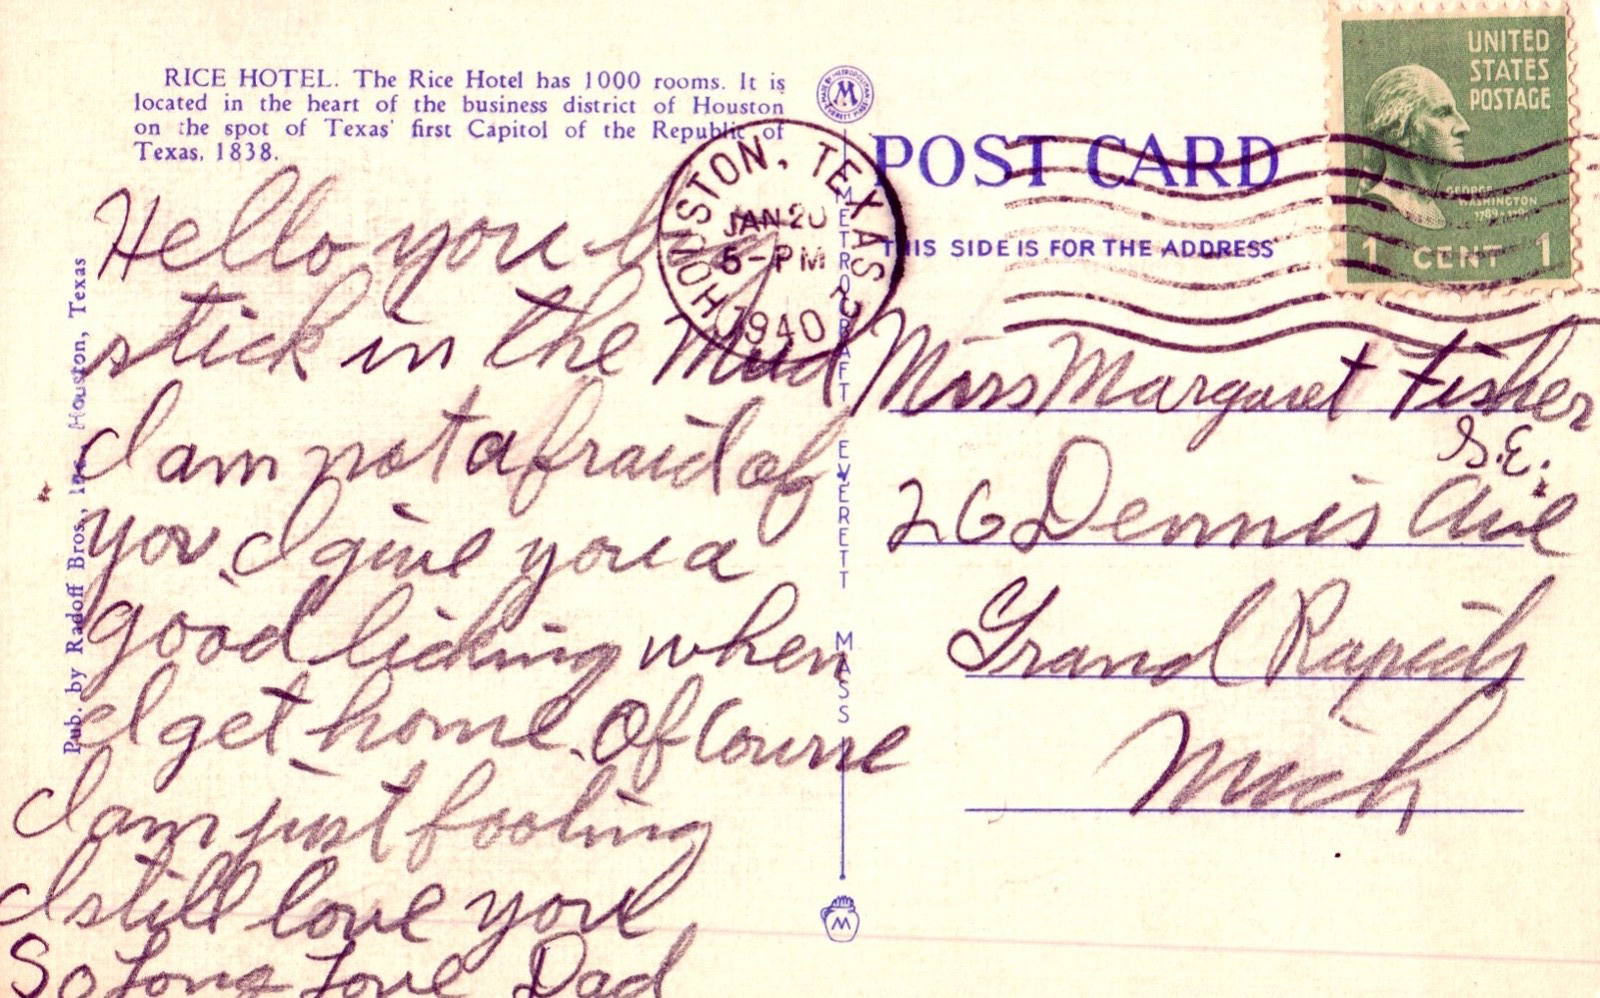 RICE HOTEL. The Rice Hotel has 1000 rooms. It is
located in the heart of the business district of Houston
on the spot of Texas' first Capitol of the Republic of
Texas, 1838.
Hello you big
stick in the Mud
I am not afraid of
you, I give you a
good licking when
I get home. Of Course
I am just fooling
I still love you
So Long Love Dad
Pub. by Radoff Bros., Inc., Houston, Texas
MADE BY METROPOLITAN
M
EVERETT MASS
METROCRAFT EVERETT MASS
M
HOUSTON, TEXAS
JAN 20
5-PM
1940
POST CARD
THIS SIDE IS FOR THE ADDRESS
UNITED
STATES
POSTAGE
GEORGE
WASHINGTON
1 CENT 1
Miss Margaret Fisher
S.E.
26 Dennis Ave
Grand Rapids
Mich